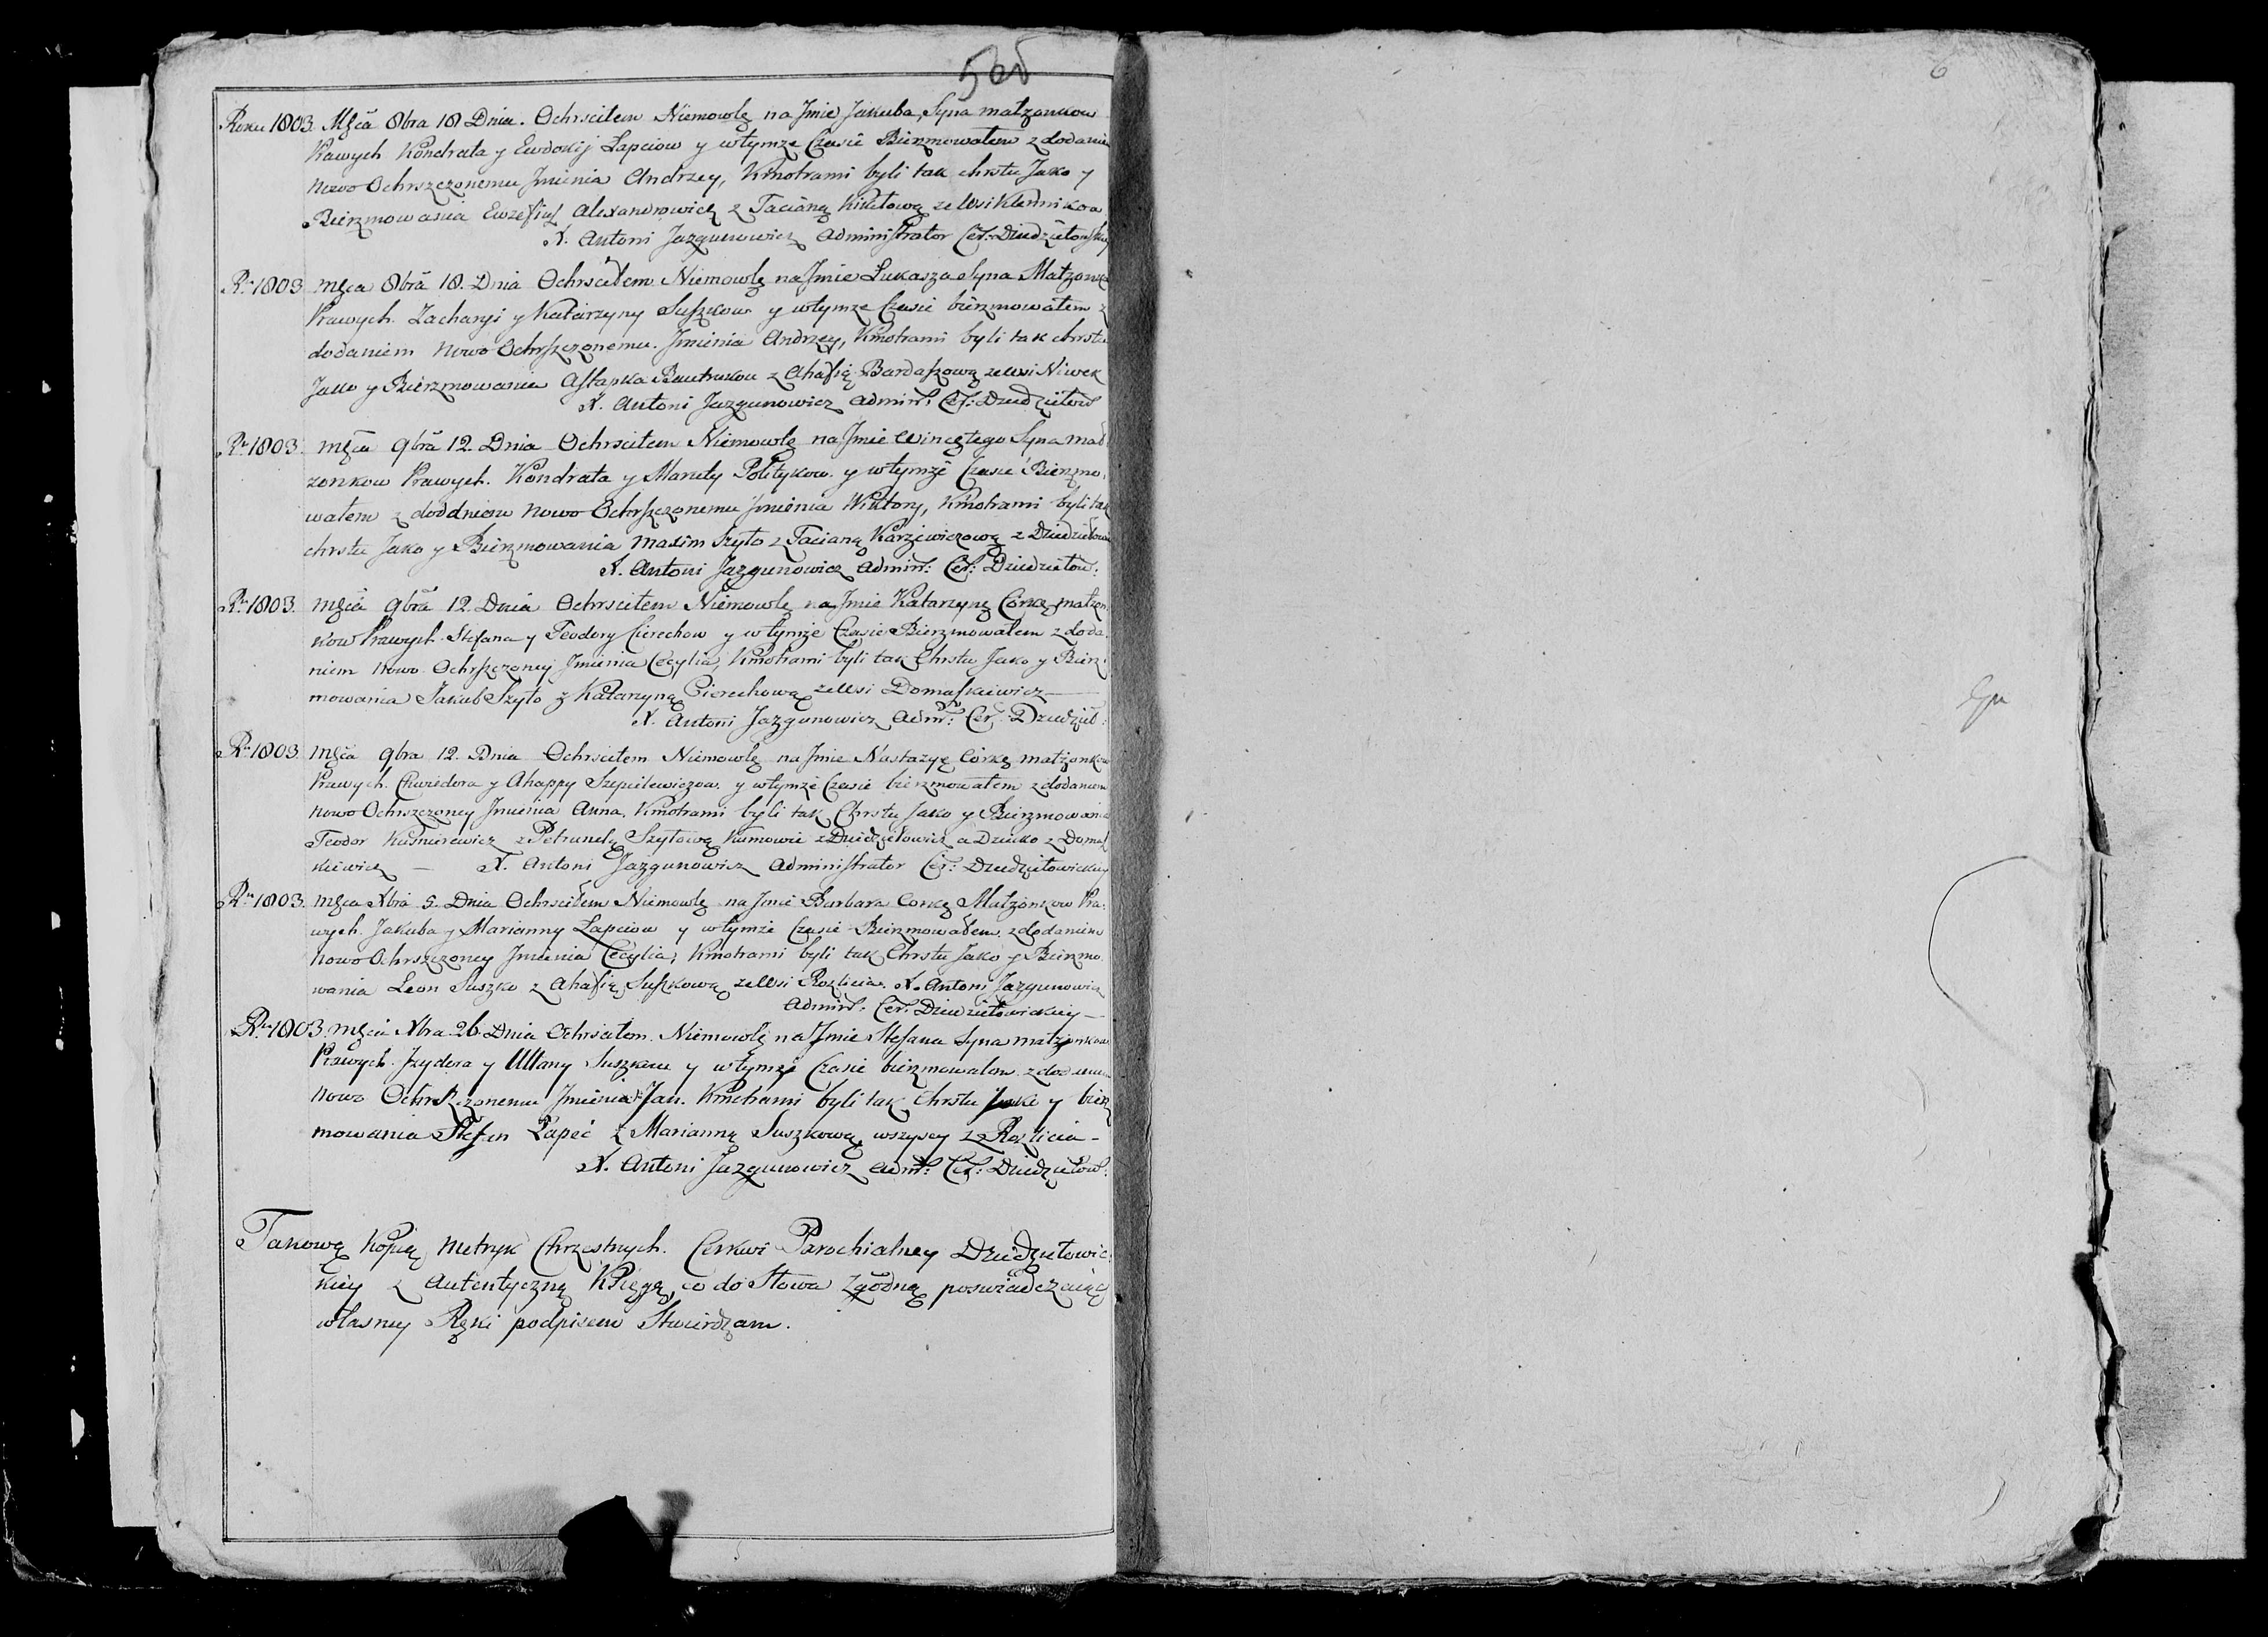 5об
6
Roku 1803. Mscа 8bra 18 Dnia. Ochrscilem Niemowlę na Jmie Jakuba, Syna małzonkow
Prawych Kondrata y Ewdokij Łapciow y wtymze Czasie Bierzmowałem z dodaniem
Nowo Ochrszczonemu Jmienia Andrzey, Kmotrami byli tak chrstu Jako y
Bierzmowania Alexandrowicz z Tacianą ze Wsi Klennikow
X. Antoni Jazgunowicz Administrator Cer:
Ru 1803 Msca 8bra 18. Dnia Ochrsciłem Niemowlę na Jmie Łukasza Syna Małzonkow
Prawych. Zacharyi y Katarzyny Suszkow y wtymze Czasie bierzmowałem z
dodaniem Nowo Ochrszczonemu. Jmienia Andrzey, Kmotrami byli tak chrstu
Jako y Bierzmowania Astapka z Ahafią Bardaszową ze wsi Niwek
X. Antoni Jazgunowicz Admin: Cer: Dziedziłow
Ru 1803. msca 9bra 12. Dnia Ochrscilem Niemowlę na Jmie Wincętego Syna mał
zonkow Prawych. Kondrata y Maruty Politykow. y wtymże Czasie Bierzmo,
wałem z doddniem Nowo Ochrszczonemu Jmienia Wiktory, Kmotrami byli tak
chrstu Jako y Bierzmowania Maxim Szyto z Tacianą Karzewiczową z
X. Antoni Jazgunowicz Admin: Cer: Dziedziałow:
Ru 1803. Msca 9bra 12. Dnia Ochrsciłem Niemowlę na Jmie Katarzynę Corkę małzon
kow Prawych. Stefana y Teodory Cierechow y wtymże Czasie Bierzmowałem z doda
niem Nowo Ochrszczoney Jmienia Cecylia, Kmotrami byli tak Chrstu Jako y Bierz
mowania Jakub Szyto z Katarzyną Cierechową ze Wsi Domaszkiewicz
X. Antoni Jazgunowicz Adm: Cer: Dziedził:
Ru 1803. Msca 9bra 12. Dnia Ochrsciłem Niemowlę na Jmie Nastazyę Corkę małzonkow
Prawych. Chwiedora y Ahappy Szepielewiczow. y wtymże Czasie bierzmowałem z dodaniem
Nowo Ochrszczoney Jmienia Anna. Kmotrami byli tak Chrstu Jako y Bierzmowania
Teodor Kusnierewicz z Petrunelą Szytową Kumowie z Dziedziełowicz a Dziecko z Domasz
kiewicz — X. Antoni Jazgunowicz Administrator Cer: Dziedziełowickiey
Ru 1803. Msca Xbra 5. Dnia Ochrsciłem Niemowlę na Jmie Barbara Corkę Małzonkow Pra,
wych. Jakuba y Marianny Łapciow y wtymże Czasie Bierzmowałem. z dodaniem
Nowo Ochrszczoney Jmienia Cecylia, Kmotrami byli tak Chrstu Jako y Bierzmo
wania Leon Suszko z Ahafią Suszkową ze Wsi Rozlicia. X. Antoni Jazgunowicz
Admin: Cer. Dziedziełowickiey —
Ru 1803. Msca Xbra 26. Dnia Ochrsciłem. Niemowlę na Jmie Stefana Syna małzonkow
Prawych. Jzydora y Ullany Suszkow y wtymże Czasie bierzmowałem z dodaniem
Nowo Ochrszczonemu Jmienia Jan. Kmotrami byli tak Chrstu Jako y bierz
mowania Stefan Łapeć z Marianną Suszkową wszyscy z Rozlicia —
X. Antoni Jazgunowicz Adm: Cer: Dziedziełow:
Takową Kopią Metryk Chrzestnych. Cerkwi Parochialney Dziedziełowic
kiey z Autentyczną Księgą, co do Słowa Zgodną poswiadczaiąc
własney Ręki podpisem Stwierdzam.